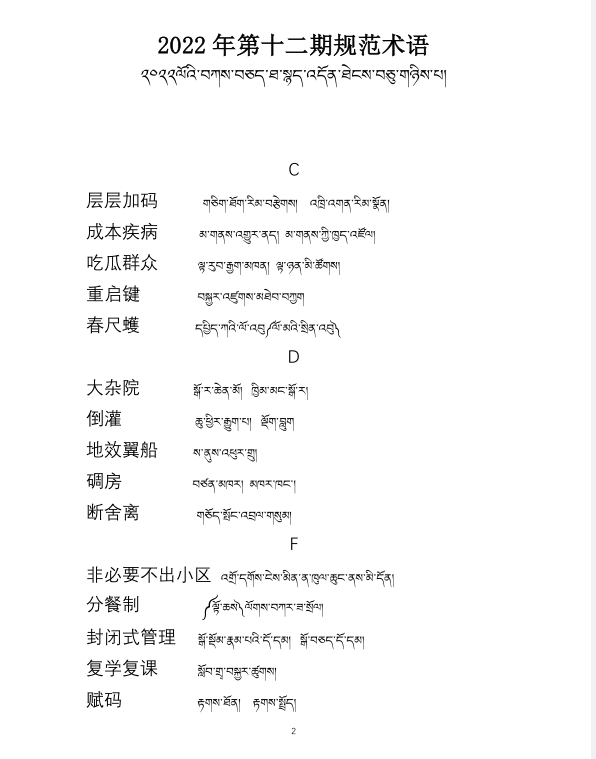 2022 年第十二期规范术语
༢༠༢༢ལོའི་བཀས་བཅད་ཐ་སྙད་འདོན་ཐེངས་བཅུ་གཉིས་པ།
C
层层加码 གཅིག་ཐོག་རིམ་བརྩེགས། འཁྲི་འགན་རིམ་སྣོན།
成本疾病 མ་གནས་འགྱུར་ནད། མ་གནས་ཀྱི་ཁྱད་འཛོལ།
吃瓜群众 ལྟ་རུབ་རྒྱག་མཁན། ལྟ་ཉན་མི་ཚོགས།
重启键 བསྐྱར་འཛུགས་མཐེབ་བཀྱག
春尺蠖 དཔྱིད་ཀའི་ལོ་འབུ༼ལོ་མའི་སྲིན་འབུ༽
D
大杂院 སྒོ་ར་ཆེན་མོ། ཁྱིམ་མང་སྒོ་ར།
倒灌 ཆུ་ཕྱིར་རྒྱུག་པ། ལྡོག་བླུག
地效翼船 ས་ནུས་འཕུར་གྲུ།
碉房 བཙན་མཁར། མཁར་ཁང་།
断舍离 གཅོད་སྤོང་འབྲལ་གསུམ།
F
非必要不出小区 འགྲོ་དགོས་ངེས་མིན་ན་ཁུལ་ཆུང་ནས་མི་དོན།
分餐制 ༼ལྟོ་ཆས༽ལོགས་བཀར་ཟ་སྲོལ།
封闭式管理 སྒོ་སྡོམ་རྣམ་པའི་དོ་དམ། སྒོ་བཅད་དོ་དམ།
复学复课 སློབ་གྲྭ་བསྐྱར་ཚུགས།
赋码 རྟགས་ཐོན། རྟགས་སྤྲོད།
2